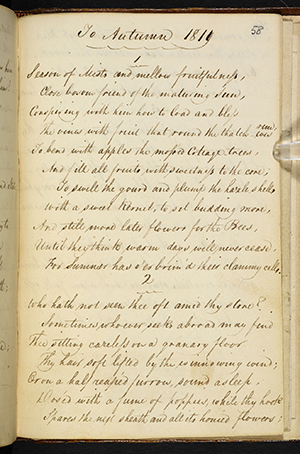 58
To Autumn 1819
1
Season of Mists and mellow fruitfulness,
Close bosom friend of the maturing Sun,
Conspiring with him how to load and bless
the vines with fruit that round the thatch eves run,
To bend with apples the moss'd Cottage trees,
And fill all fruits with sweetness to the core;
To swell the gourd and plump the hazle shells
with a sweet kernel; to set budding more,
And still more later flowers for the Bees,
Until they think warm days will never cease
For Summer has o'er brim'd their clammy cells
2
Who hath not seen thee oft amid thy store?
Sometimes, whoever seeks abroad may find
Thee sitting careless on a granary floor
Thy hair soft lifted by the winnowing wind;
Or on a half reaped furrow, sound asleep.
Dosed with a fume of poppies, while thy hook
Spares the next sheath and all its honied flowers;